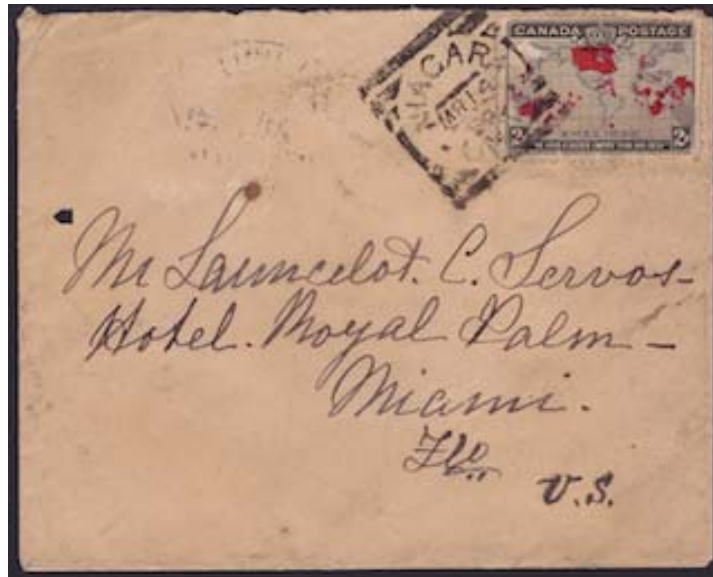 CANADA POSTAGE
2 XMAS 1898 2
NIAGARA
MR 14
Mr Launcelot. C. Servos-
Hotel. Royal Palm-
Miami.
Flo
U.S.